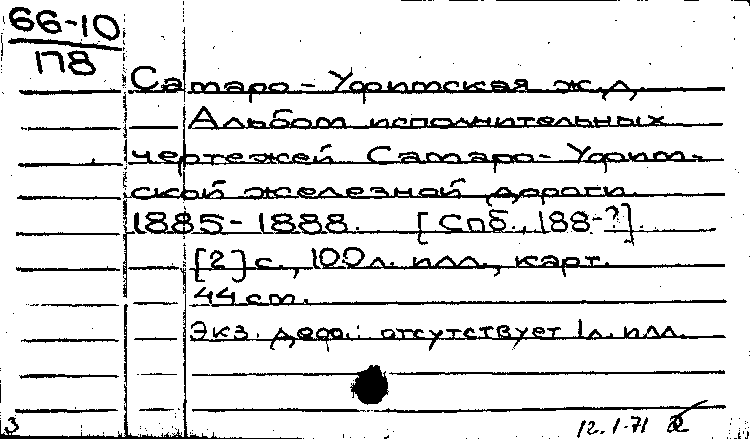 66-10
П8
Самаро-Уфимская ж.д.
Альбом исполнительных
чертежей Самаро-Уфим-
ской железной дороги.
1885-1888. [Спб., 188-?].
[2] с., 100 л. илл., карт.
44 см.
Экз. деф.: отсутствует 1 л. илл.
3
12.1-71